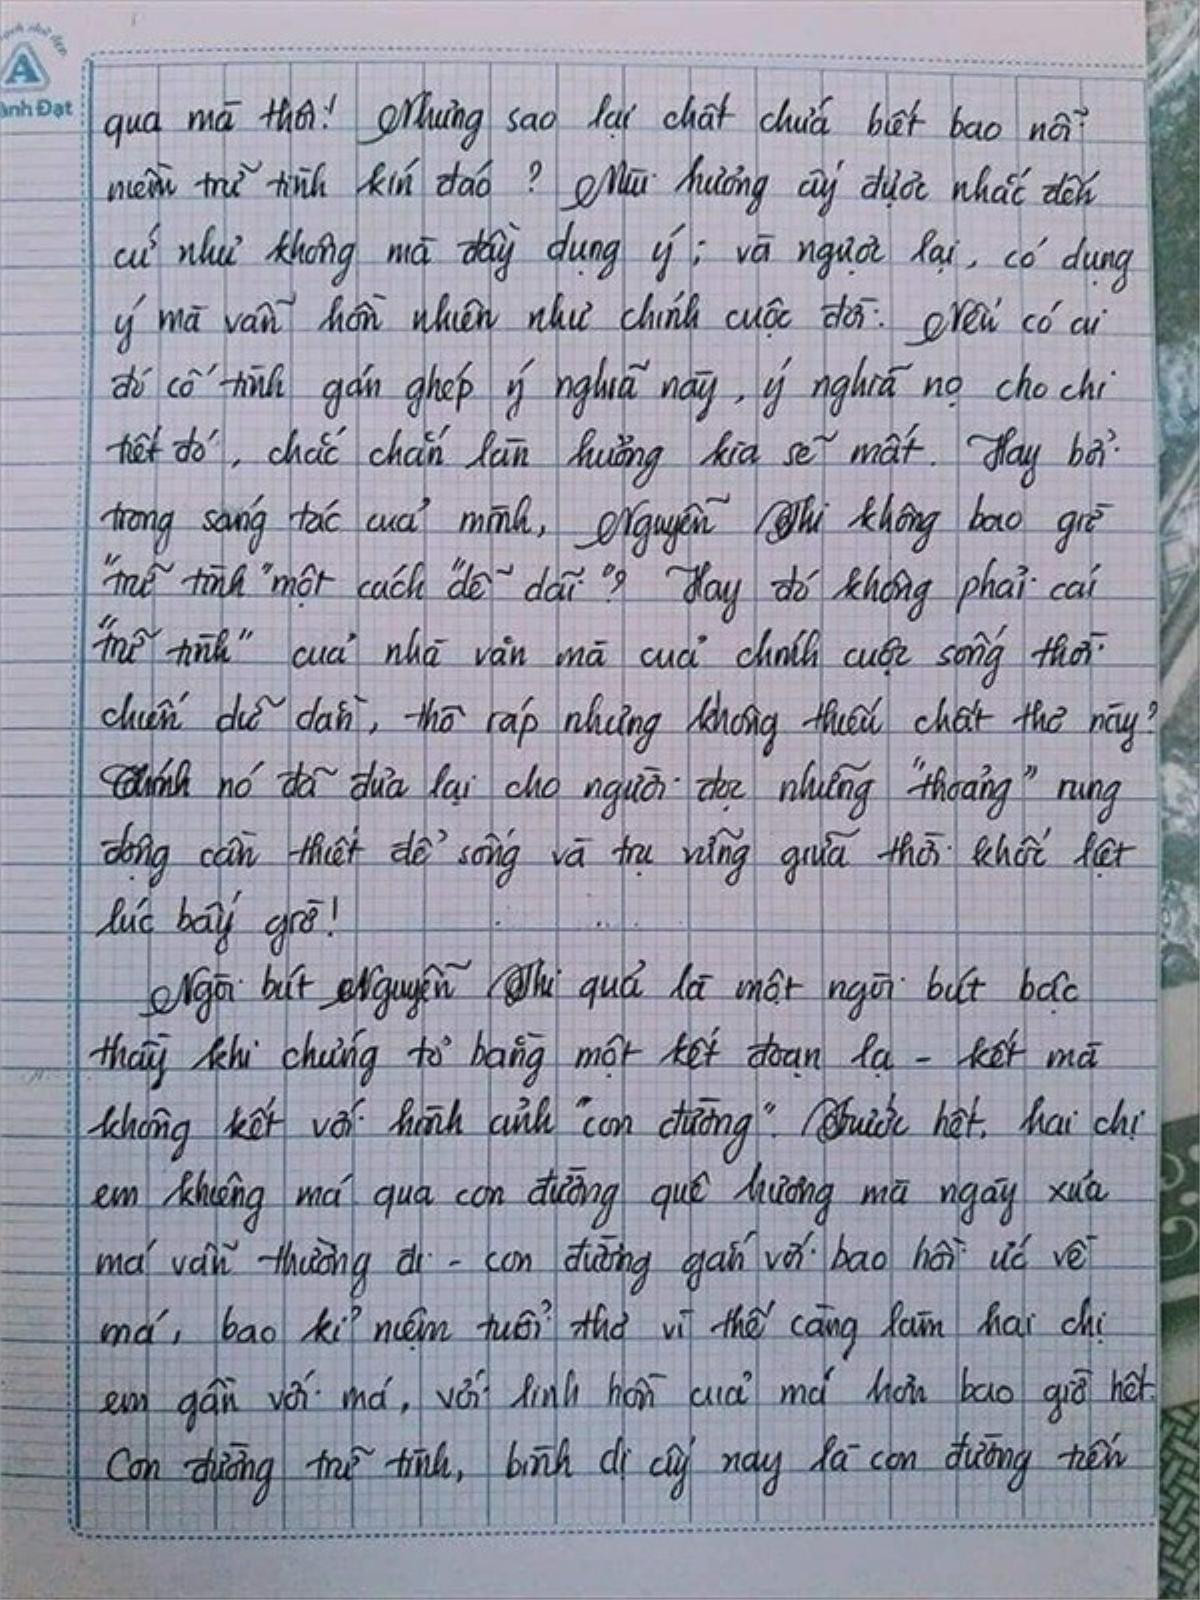 ành Đạt
qua mà thôi! Nhưng sao lại chất chứa biết bao nỗi
niềm trữ tình kín đáo? Mùi hương ấy được nhắc đến
cứ như không mà đầy dụng ý; và ngược lại, có dụng
ý mà vẫn hồn nhiên như chính cuộc đời. Nếu có ai
đó cố tình gán ghép ý nghĩa này, ý nghĩa nọ cho chi
tiết đó, chắc chắn làn hưởng kia sẽ mất. Hay bởi
trong sáng tác của mình, Nguyễn Thi không bao giờ
"trữ tình" một cách "dễ dãi"? Hay đó không phải cái
"trữ tình" của nhà văn mà của chính cuộc sống thời
chiến dữ dằn, thô ráp nhưng không thiếu chất thơ này?
Chính nó đã đưa lại cho người đọc những "thoảng" rung
động cần thiết để sống và trụ vững giữa thời khốc liệt
lúc bấy giờ!
Ngòi bút Nguyễn Thi quả là một ngòi bút bậc
thầy khi chứng tỏ bằng một kết đoạn lạ - kết mà
không kết với hình ảnh "con đường". Trước hết, hai chị
em khiêng má qua con đường quê hương mà ngày xưa
má vẫn thường đi - con đường gắn với bao hồi ức về
má, bao kỉ niệm tuổi thơ vì thế càng làm hai chị
em gần với má, với linh hồn của má hơn bao giờ hết.
Con đường trữ tình, bình dị ấy nay là con đường tiến